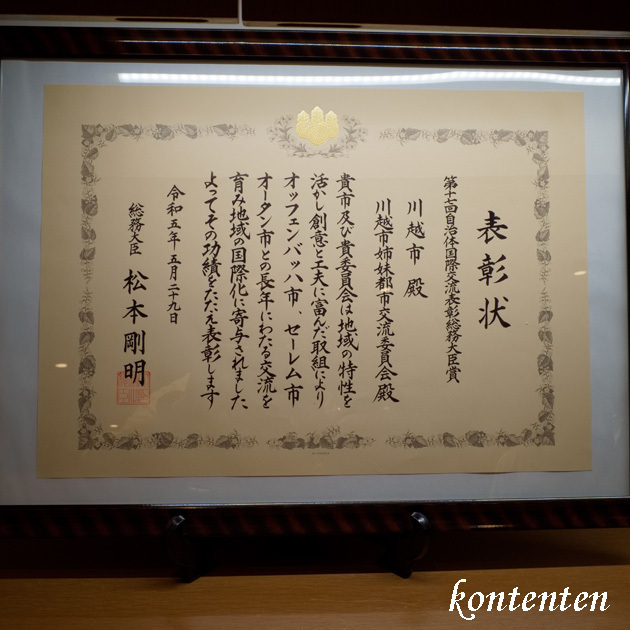 表彰状
第十七回自治体国際交流表彰総務大臣賞
川越市 殿
川越市姉妹都市交流委員会殿
貴市及び貴委員会は地域の特性を
活かし創意と工夫に富んだ取組により
オッフェンバッハ市、セーレム市
オータン市との長年にわたる交流を
育み地域の国際化に寄与されました
よってその功績をたたえ表彰します
令和五年五月二十九日
総務大臣 松本剛明
kontenten